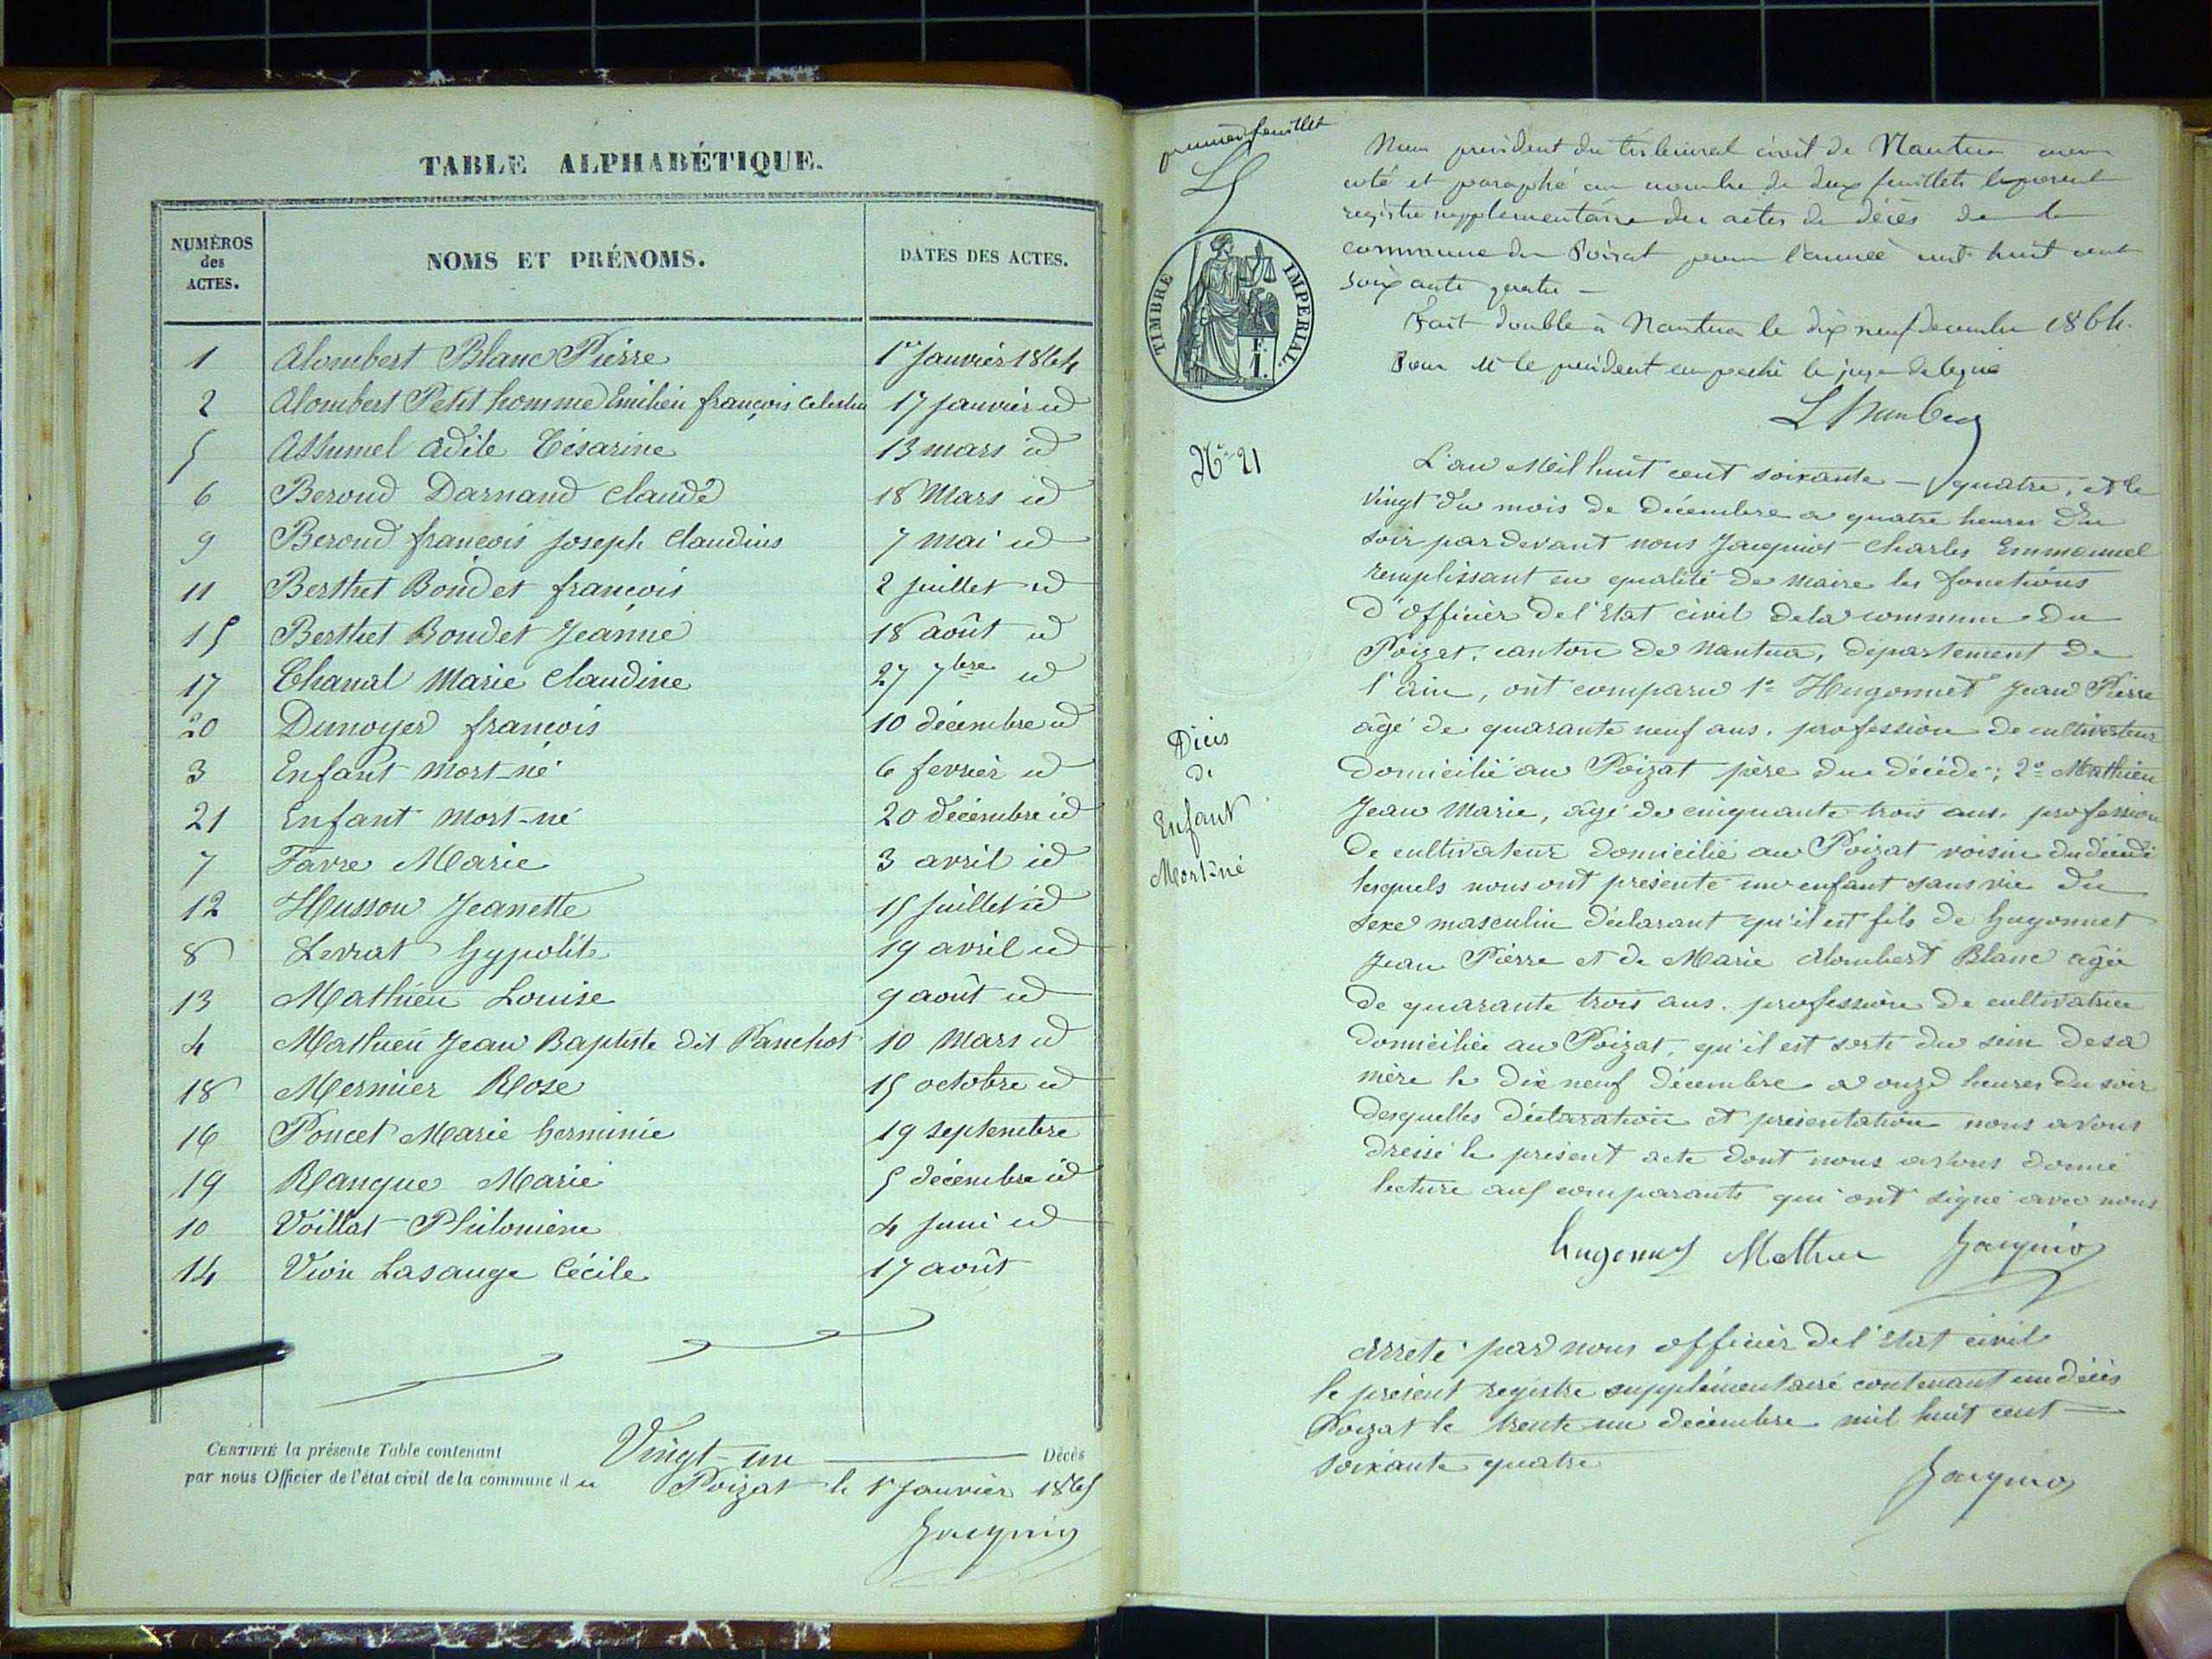 TABLE ALPHABÉTIQUE.
NUMÉROS des ACTES. NOMS ET PRÉNOMS. DATES DES ACTES.
1 Alombert Blanc Pierre 1er Janvier 1864
2 Alombert Petit homme Emilien françois Celestin 17 janvier id
5 Assumel Adile Césarine 13 mars id
6 Beroud Darnand Claude 18 Mars id
9 Beroud françois joseph Claudius 7 mai id
11 Berthet Bondet françois 2 juillet id
15 Berthet Bondet Jeanne 18 août id
17 Chanal Marie Claudine 27 7bre id
20 Dunoyer françois 10 décembre id
3 Enfant mort-né 6 fevrier id
21 Enfant mort-né 20 décembre id
7 Favre Marie 3 avril id
12 Husson Jeanette 15 juillet id
8 Levrat hypolite 19 avril id
13 Mathieu Louise 9 août id
4 Mathieu Jean Baptiste dit Panchot 10 Mars id
18 Mermier Rose 15 octobre id
16 Poncet Marie herminie 19 septembre
19 Rangue Marie 5 décembre id
10 Voillat Philomène 4 juin id
14 Vion Lasauge Cécile 17 août
CERTIFIÉ la présente Table contenant Vingt-un Décès
par nous Officier de l'état civil de la commune du Poizat le 1er Janvier 1865
Jacquiot
premier feuillet
Nous president du tribunal civil de Nantua avons
coté et paraphé au nombre de deux feuillets le present
registre supplementaire des actes de décès de la
commune du Poizat pour l'année mil huit cent
soixante quatre —
Fait double à Nantua le dix neuf decembre 1864.
Pour Mr le president empeché le juge delegué
TIMBRE IMPÉRIAL.
E. I.
No 21
Décès
de
Enfant
Mort-né
L'an Mil huit cent soixante — quatre, et le
vingt du mois de Décembre a quatre heures du
soir par devant nous Jacquiot Charles Emmanuel
remplissant en qualité de maire les fonctions
d'officier de l'Etat civil de la commune du
Poizat, canton de Nantua, département de
l'ain, ont comparu 1o Hugonnet Jean Pierre
âgé de quarante neuf ans, profession de cultivateur
domicilié au Poizat père du décédé; 2o Mathieu
Jean Marie, âgé de cinquante trois ans, profession
de cultivateur domicilié au Poizat voisin du décédé
lesquels nous ont présenté un enfant sans vie du
sexe masculin déclarant qu'il est fils de hugonnet
Jean Pierre et de Marie Alombert Blanc agée
de quarante trois ans, profession de cultivatrice
domiciliée au Poizat, qu'il est sorti du sein de sa
mère le dix neuf décembre a onze heures du soir
desquelles déclaration et présentation nous avons
dressé le présent acte dont nous avons donné
lecture aux comparants qui ont signé avec nous
hugonnet Mathieu Jacquiot
Arrêté par nous officier de l'état civil
le présent registre supplémentaire contenant un décès
Poizat le trente un décembre mil huit cent —
soixante quatre
Jacquiot